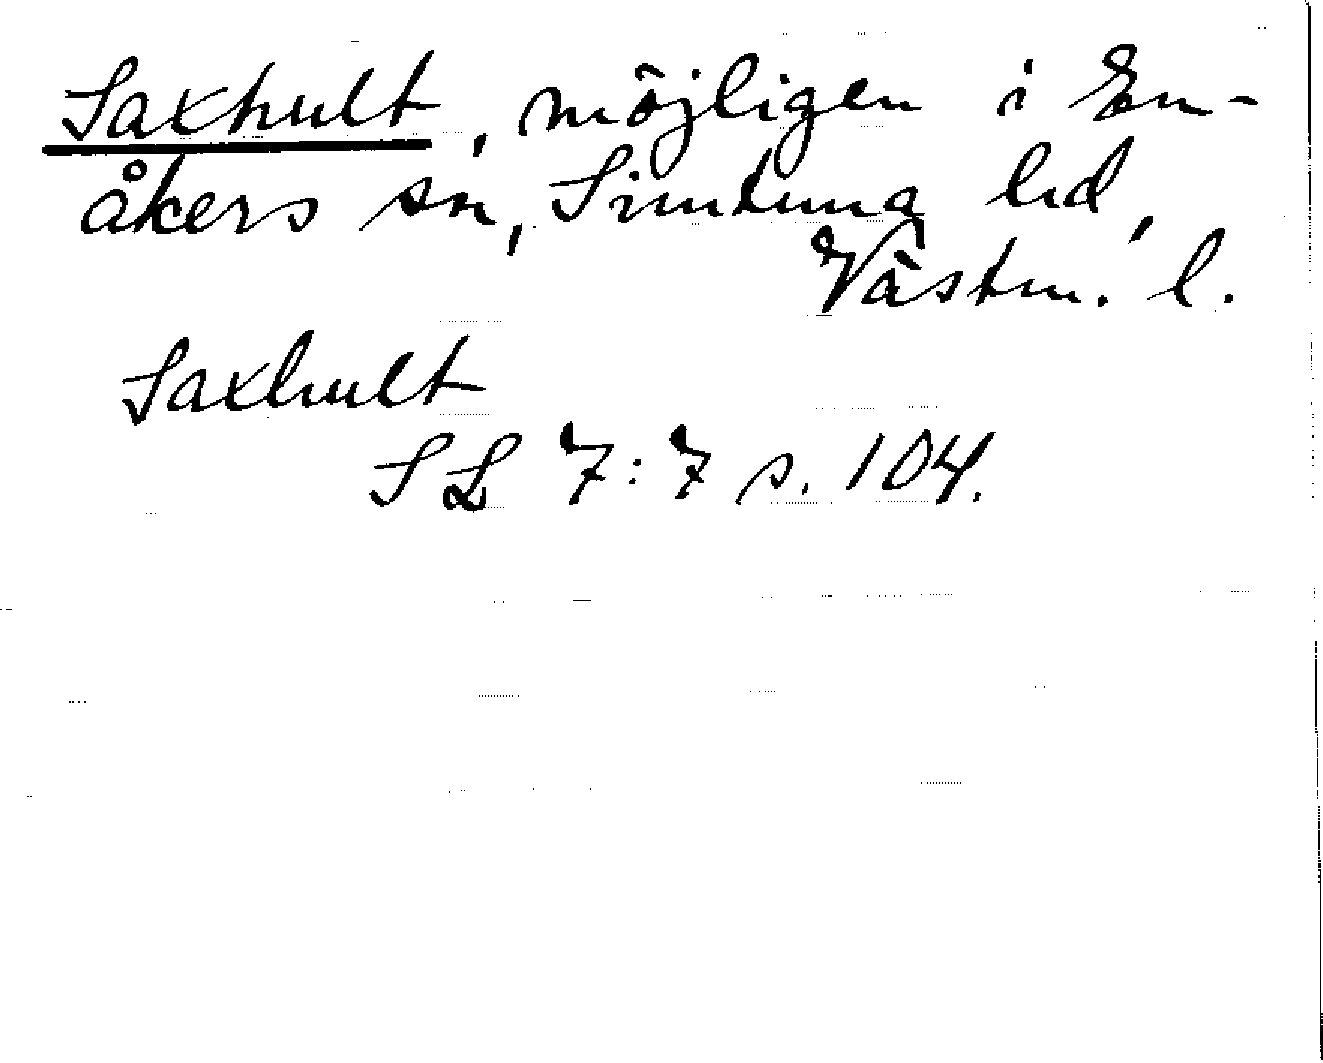 Saxhult, möjligen i En-
åkers sn, Simtuna hd,
Västm. l.
Saxhult
SL 7:7 s. 104.